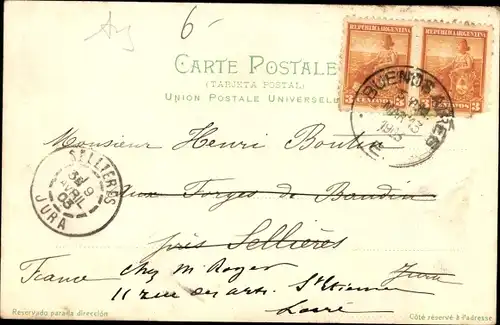 Arg
6
CARTE POSTALE
(TARJETA POSTAL)
UNION POSTALE UNIVERSELLE
REPUBLICA ARGENTINA REPUBLICA ARGENTINA
3 CENTAVOS 3 CENTAVOS 3
BUENOS AIRES
MAR 13
Monsieur Henri Boulin
SELLIERES
9
AVRIL
05
JURA
aux Forges de Baudin
près Sellières
Jura
France chez M. Roger
11 rue des arts. St Etienne
Loire
Reservado para la dirección Côté réservé à l'adresse